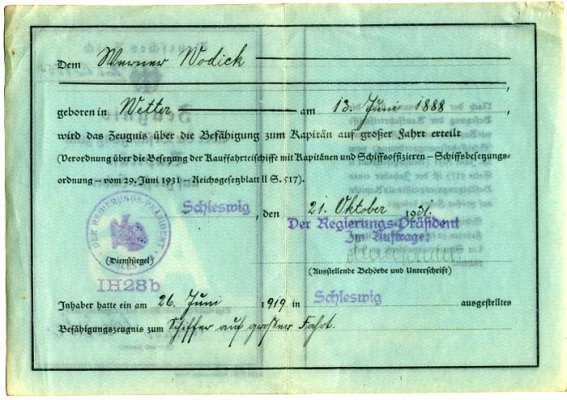 Dem Werner Wodick
geboren in Wetter am 13. Juni 1888,
wird das Zeugnis über die Befähigung zum Kapitän auf großer Fahrt erteilt
(Verordnung über die Besetzung der Kauffahrteischiffe mit Kapitänen und Schiffsoffizieren – Schiffsbesetzungs-
ordnung – vom 29. Juni 1931 – Reichsgesetzblatt II S. 517).
Schleswig, den 21. Oktober 1931.
DER REGIERUNGS-PRÄSIDENT
Der Regierungs-Präsident
Im Auftrage:
(Dienstsiegel)
(Ausstellende Behörde und Unterschrift)
IH28b
Inhaber hatte ein am 26. Juni 1919 in Schleswig ausgestelltes
Befähigungszeugnis zum Schiffer auf großer Fahrt.